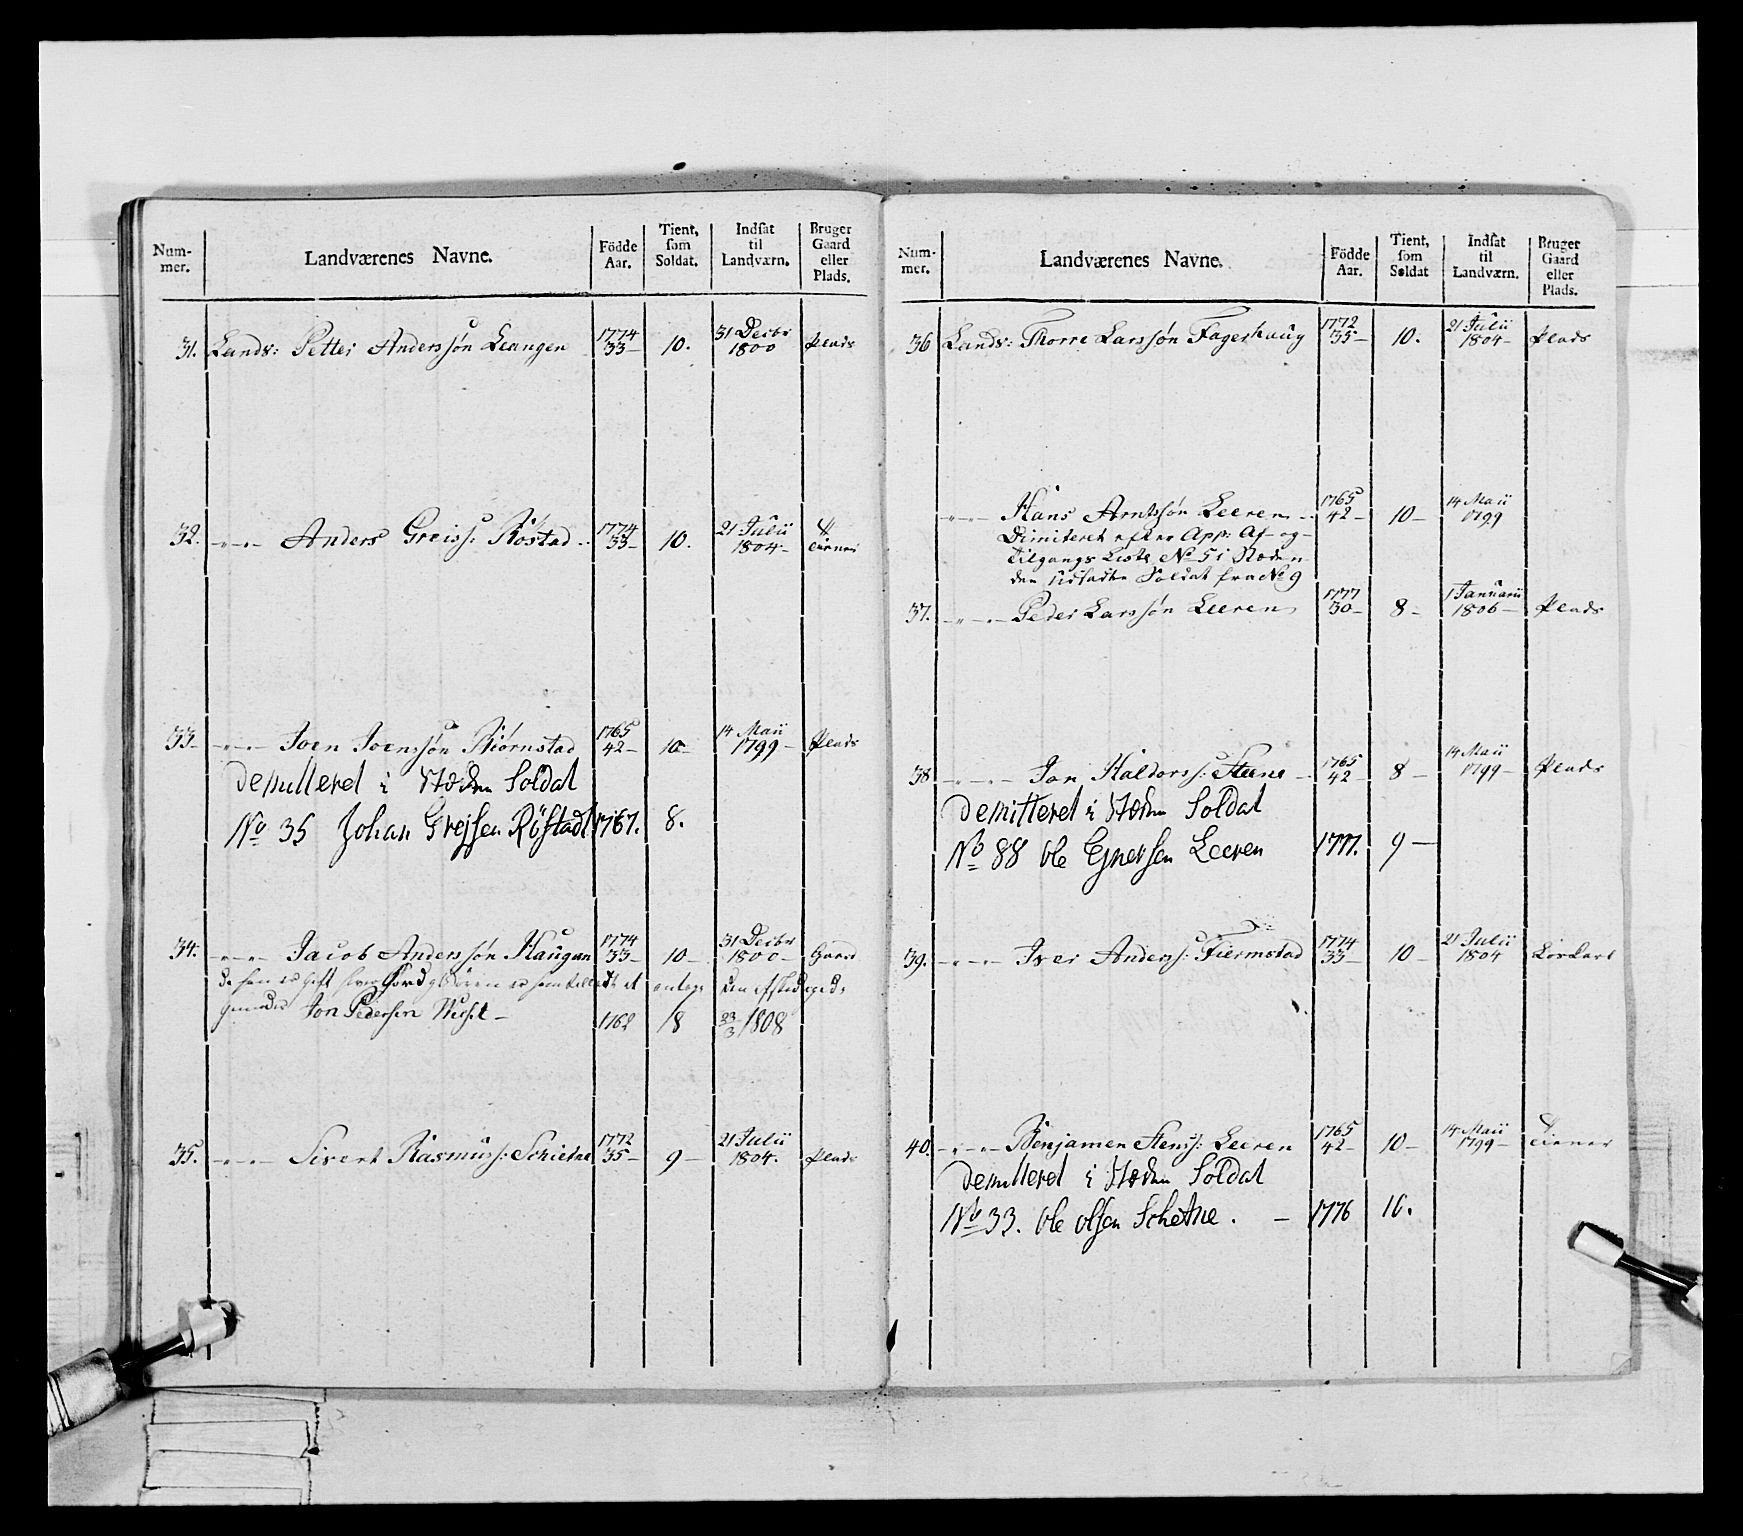 Num-
mer.
Landværenes Navne.
Födde
Aar.
Tient,
som
Soldat.
Indsat
til
Landværn.
Bruger
Gaard
eller
Plads.
31. Lands: Petter Anderssøn Leangen 1774 33- 10. 31 Decbr 1800 Plads
32. -"- Anders Greiss: Røstad 1774 33- 10. 21 Julii 1804- tienner
33- -"- Joen Joenssøn Biørnstad 1765 42- 10- 14 Maii 1799- Plads
Demitteret i Stæden Soldat
No 35 Johan Grejsen Röstad 1767. 8.
34. -"- Jacob Anderssøn Haugan 1774 33- 10- 31 Decbr 1800- Gaard
Jon Pedersen 1762 8 23/3 1808
35. -"- Sivert Rasmuss: Schietne 1772 35- 9- 21 Julii 1804. Plads
Num-
mer.
Landværenes Navne.
Födde
Aar.
Tient,
som
Soldat
Indsat
til
Landværn.
Bruger
Gaard
eller
Plads.
36 Lands: Thorre Larssøn Fagerhaug 1772 35- 10. 21 Julii 1804- Plads
-"- Hans Arntssøn Leeren 1765 42- 10- 14 Maii 1799
Dimiteret efter App: Af- og-
Tilgangs Liste No 5 i Stæden
den udsadte Soldat fra No 9
37. -"- Peder Larssøn Leeren 1777 30- 8- 1 Januarii 1806- Plads
38 -"- Jon Haldorss: Steene 1765 42- 8- 14 Maii 1799- Plads
Demitteret i Stæden Soldat
No 88 Ole Ejnersen Leeren 1777. 9-
39. -"- Iver Anderss: Fiermstad 1774 33- 10- 21 Julii 1804 Løskarl
40. -"- Benjamen Stenss: Leeren 1765 42- 10- 14 Maii 1799- tiener
Demitteret i Stæden Soldat
No 33. Ole Olsen Schetne. - 1776 16.